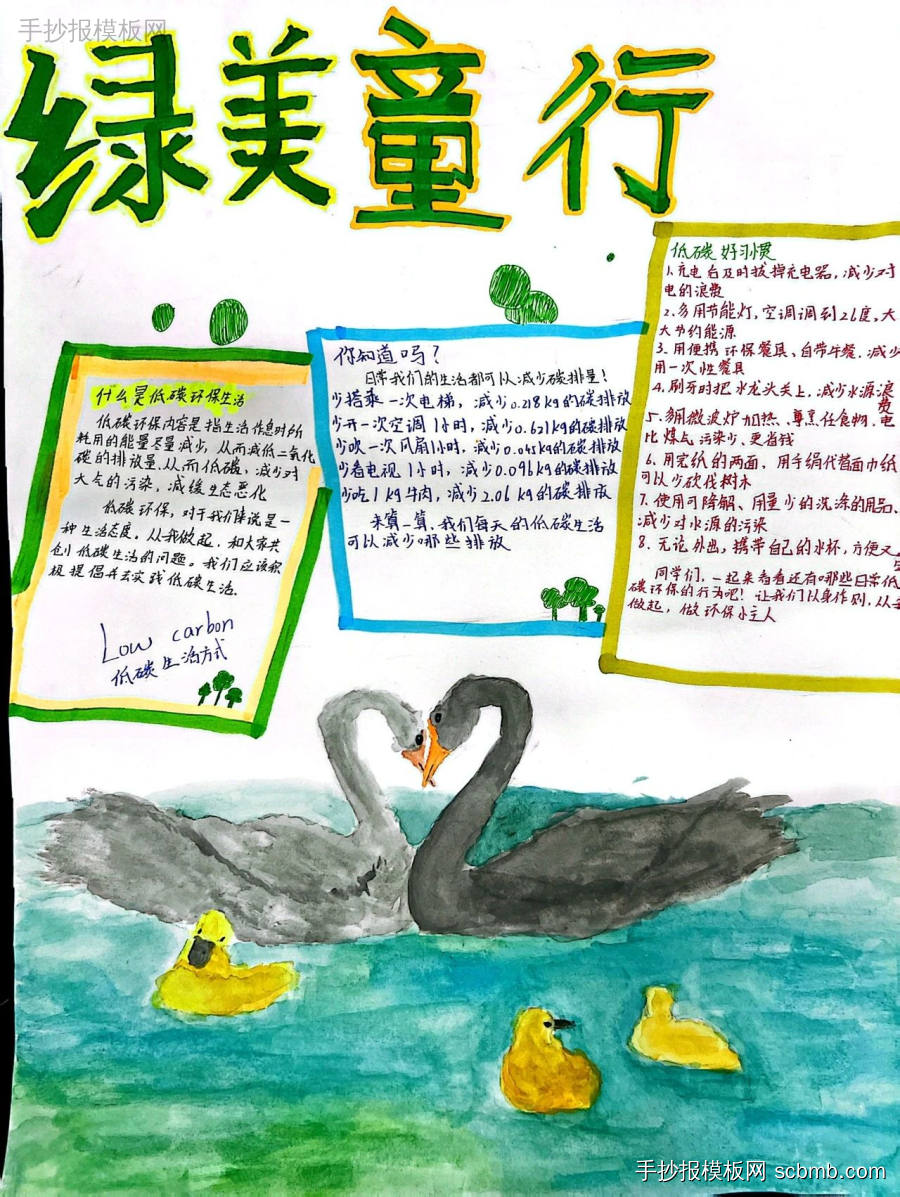 手抄报模板网
绿美童行
什么是低碳环保生活
低碳环保内容是指生活作息时所
耗用的能量尽量减少,从而减低二氧化
碳的排放量,从而低碳,减少对
大气的污染,减缓生态恶化
低碳环保,对于我们来说是一
种生活态度。从我做起,和大家共
创低碳生活的问题。我们应该积
极提倡并去实践低碳生活。
Low carbon
低碳生活方式
你知道吗?
日常我们的生活都可以减少碳排量!
少搭乘一次电梯,减少0.218kg的碳排放
少开一次空调1小时,减少0.621kg的碳排放
少吹一次风扇1小时,减少0.045kg的碳排放
少看电视1小时,减少0.096kg的碳排放
少吃1kg牛肉,减少2.06kg的碳排放
来算一算,我们每天的低碳生活
可以减少哪些排放
低碳好习惯
1.充电后及时拔掉充电器,减少对
电的浪费
2.多用节能灯,空调调到26度,大
大节约能源
3.用便携环保餐具、自带午餐,减少
用一次性餐具
4.刷牙时把水龙头关上,减少水源浪
费
5.多用微波炉加热、烹煮任食物,电
比煤气污染少,更省钱
6.用完纸的两面,用手绢代替面巾纸
可以少砍伐树木
7.使用可降解、用量少的洗涤的用品,
减少对水源的污染
8.无论外出,携带自己的水杯,方便又
同学们,一起来看看还有哪些日常低
碳环保的行为吧!让我们以身作则,从
做起,做环保小主人
手抄报模板网 scbmb.com